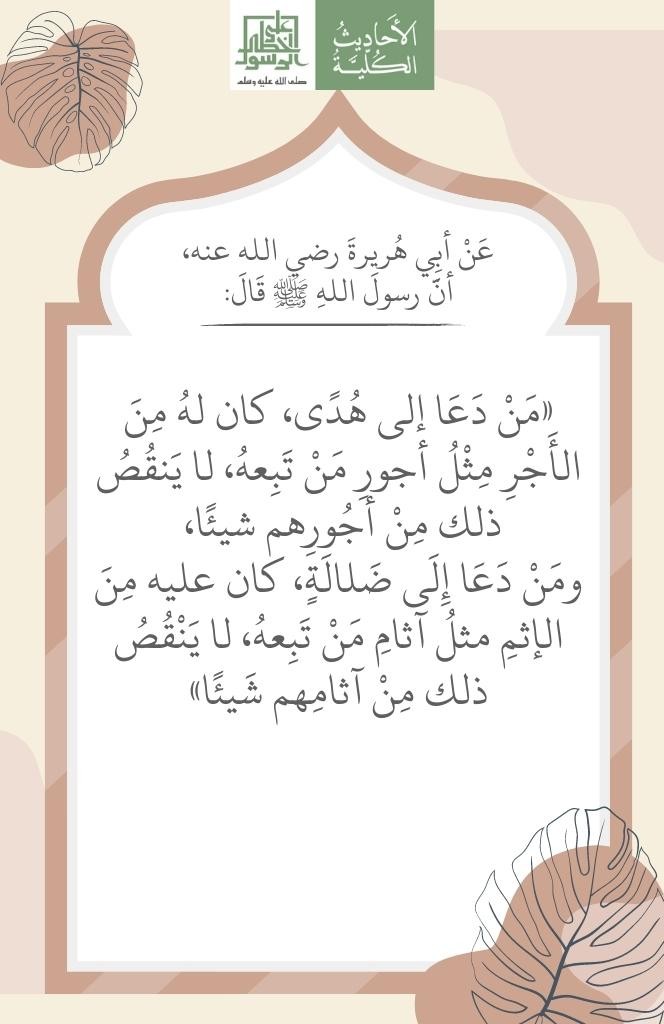 الأَحَادِيثُ
الكُلِّيَّةُ
على
خطى
الرسول
صلى الله عليه وسلم
عَنْ أَبِي هُريرةَ رضي الله عنه،
أنَّ رسولَ اللهِ ﷺ قَالَ:
«مَنْ دَعَا إلى هُدًى، كان لهُ مِنَ
الأَجْرِ مِثْلُ أجورِ مَنْ تَبِعهُ، لا يَنقُصُ
ذلك مِنْ أُجُورِهم شيئًا،
ومَنْ دَعَا إِلَى ضَلالَةٍ، كان عليه مِنَ
الإثمِ مثلُ آثامِ مَنْ تَبِعهُ، لا يَنْقُصُ
ذلك مِنْ آثامِهم شَيئًا»